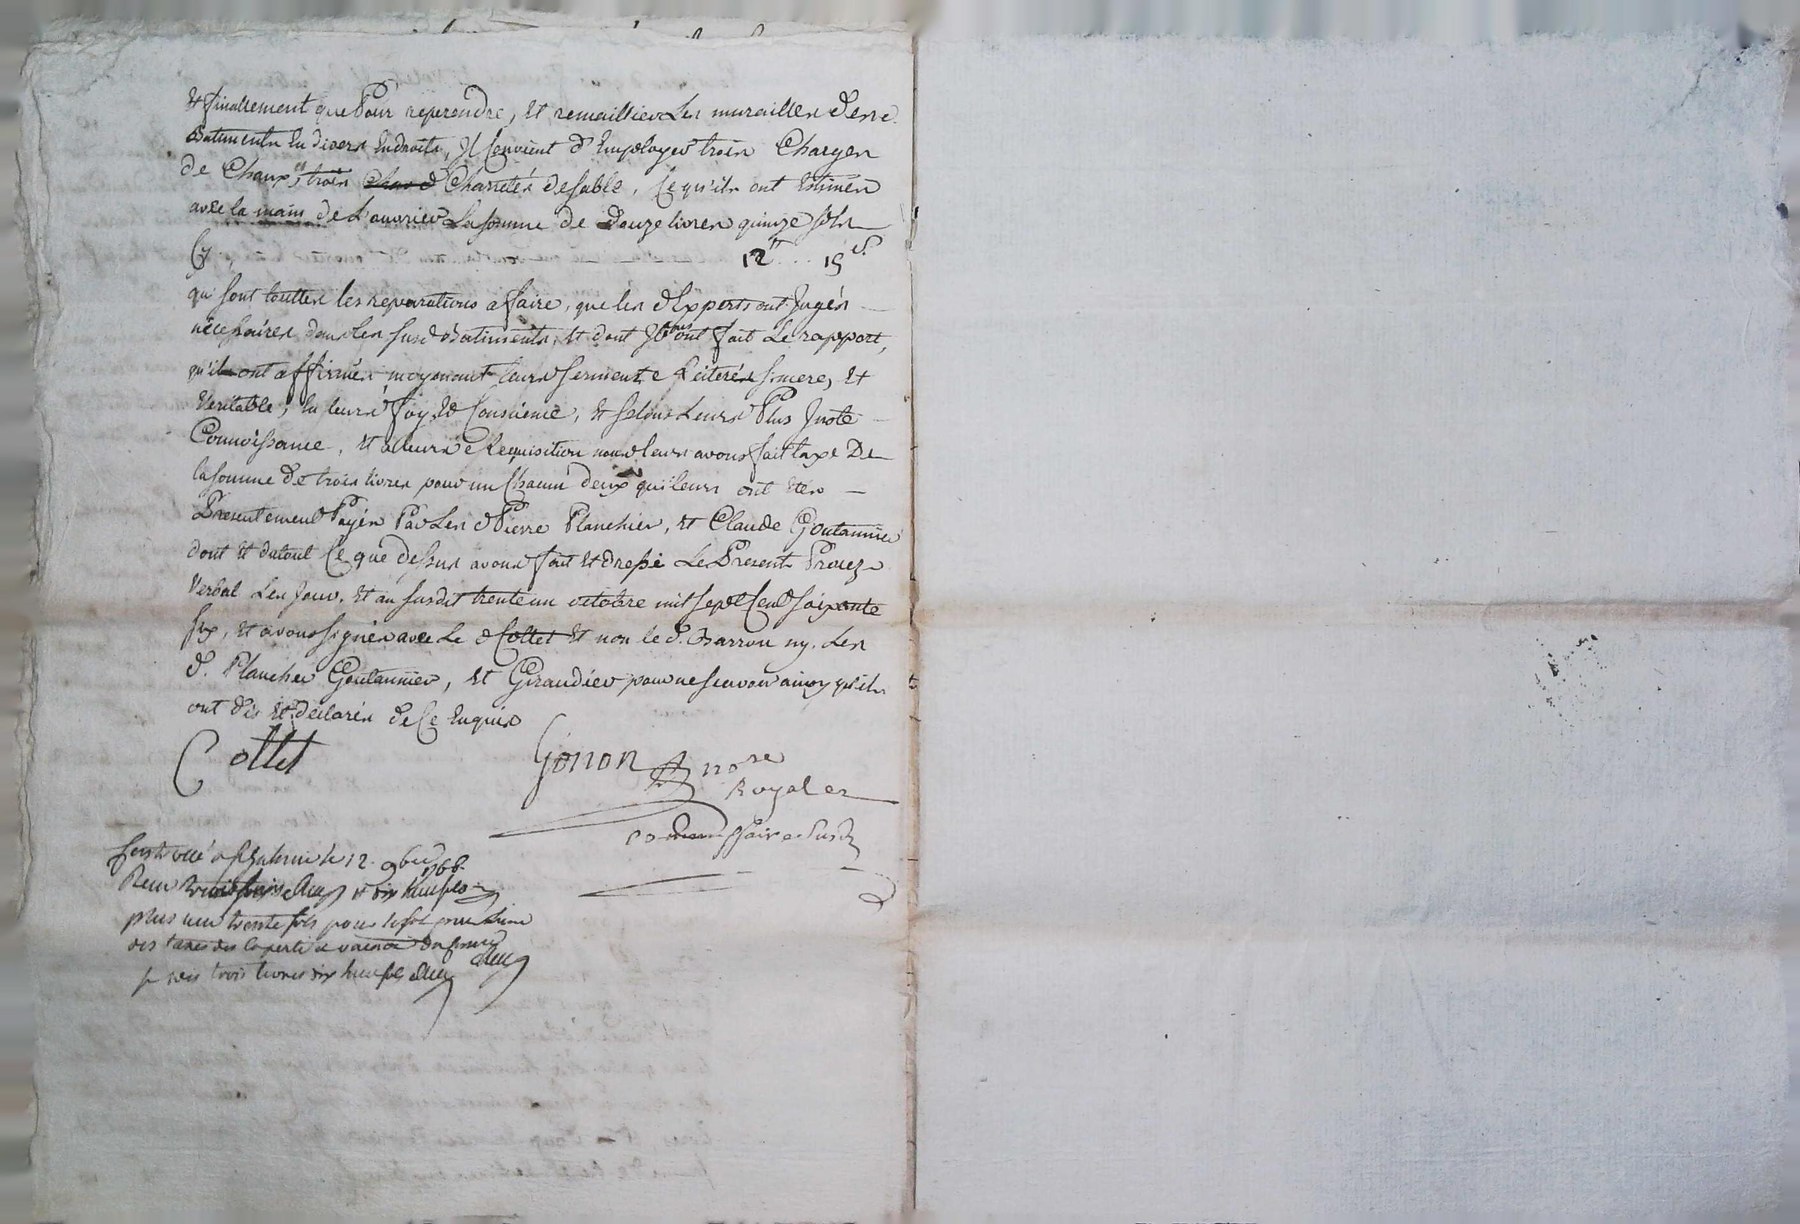 Et finallement que Pour reprendre, et remaillier Les murailles desd.
Batiments En divers Endroits, Il Convient d'Employer trois Charges
de Chaux, et trois Charretés de sable, Ce qu'ils ont Estimés
avec la main de L'ouvrier La somme de Douze livres quinze sols
Cy 12ᵗᵗ... 15 s.
qui sont touttes les reparations a faire, que les d. Experts ont Jugés
nécessaires dans les susd. Batiments, et dont Ils nous ont fait Le rapport,
qu'ils ont affirmés moyenant leurs serments Reiterés sincere, et
Veritable, En leurs foy, et Conscience, et selons Leurs Plus Juste
Connoissance, et a leurs Requisition nous leurs avons fait taxe De
la somme de trois livres pour un Chacun deux qui leurs ont étés
Presentement Payés Par Les d. Pierre Planchier, et Claude Goutannier
dont et du tout Ce que dessus avons fait et dressé Le Present Procez
Verbal Les Jour, et an susdit trente un octobre mil sept Cent soixante
six, et avons signés avec Le d. Collet et non le d. Barrou ny Les
d. Plancher Goutannier, et Giraudier pour ne scavoir ainsy qu'ils
ont dis et déclarés de Ce Enquis
Collet Gonon nore
Royal et
commissaire susd.
le 12 9bre 1766
Recu
plus recu trente sols pour
des taxes des
trois livres six